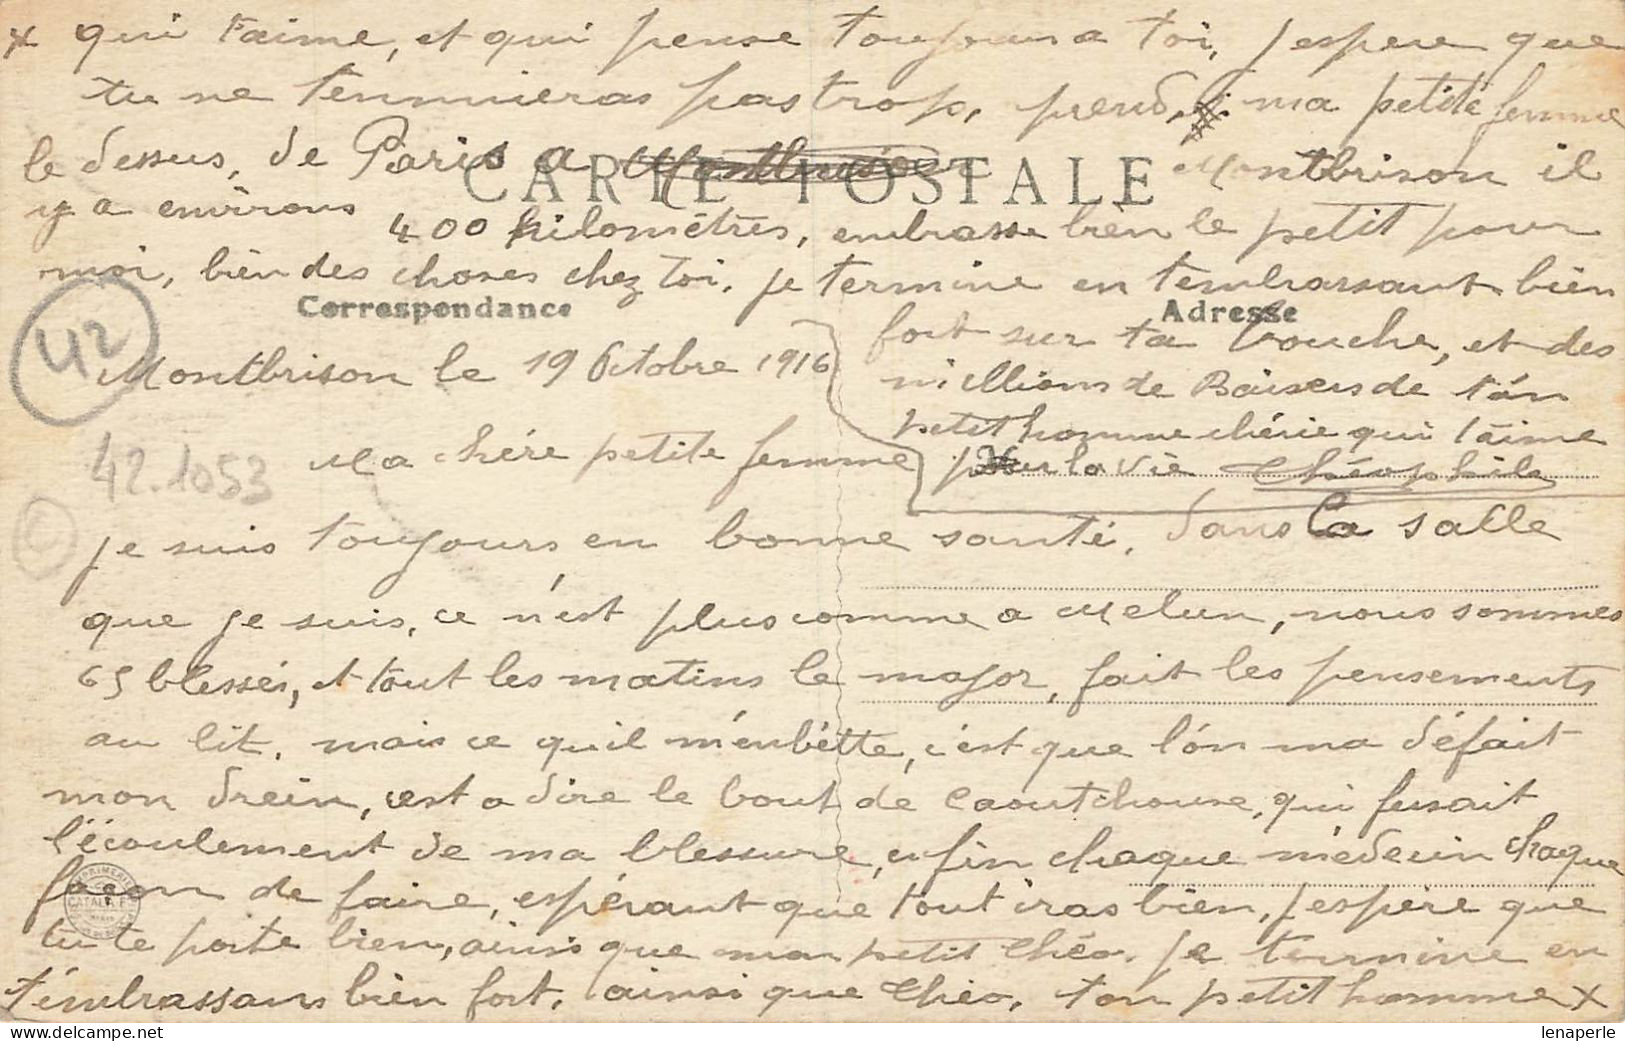 x qui t'aime, et qui pense toujours a toi, j'espere que
tu ne t'ennuieras pas trop, prend, ma petite femme
le dessus, de Paris a Montbrison il
CARTE POSTALE
y a environs 400 kilométrès, embrasse bien le petit pour
moi, bien des choses chez toi, je termine en t'embrassant bien
Correspondance
Adresse
fort sur ta bouche, et des
millions de Baisers de t'on
petit homme chérie qui t'aime
pour la vie Théophile
42
Montbrison le 19 Octobre 1916
42.1053
Ma chére petite femme
je suis toujours en bonne santé, dans la salle
que je suis, ce n'est plus comme a Melun, nous sommes
65 blessés, et tout les matins le major, fait les pensements
au lit, mais ce qu'il m'enbétte, c'est que l'on ma défait
mon drein, cest a dire le bout de caoutchouse, qui fesait
l'écoulement de ma blessure, enfin chaque médecin chaque
façon de faire, espérant que tout iras bien, j'espère que
tu te porte bien, ainsi que mon petit Théo. Je termine en
t'embrassans bien fort, ainsi que Théo, ton petit homme x
lenaperle